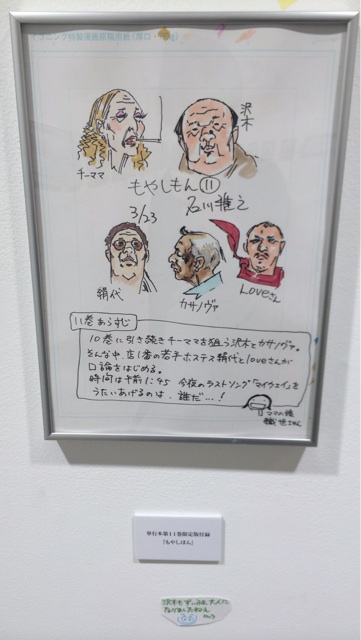 モーニング特製漫画原稿用紙(厚口・
チーママ
沢木
もやしもん⑪
3/23
石川雅之
絹代
カサノヴァ
Loveさん
11巻あらすじ
10巻に引き続きチーママを狙う沢木とカサノヴァ。
そんな中、店1番の若手ホステス絹代とloveさんが
口論をはじめる。
時間は午前1:45 今夜のラストソング「マイウェイ」を
うたいあげるのは、誰だ…!
ママの娘
単行本第11巻限定版付録
『もやしもん』